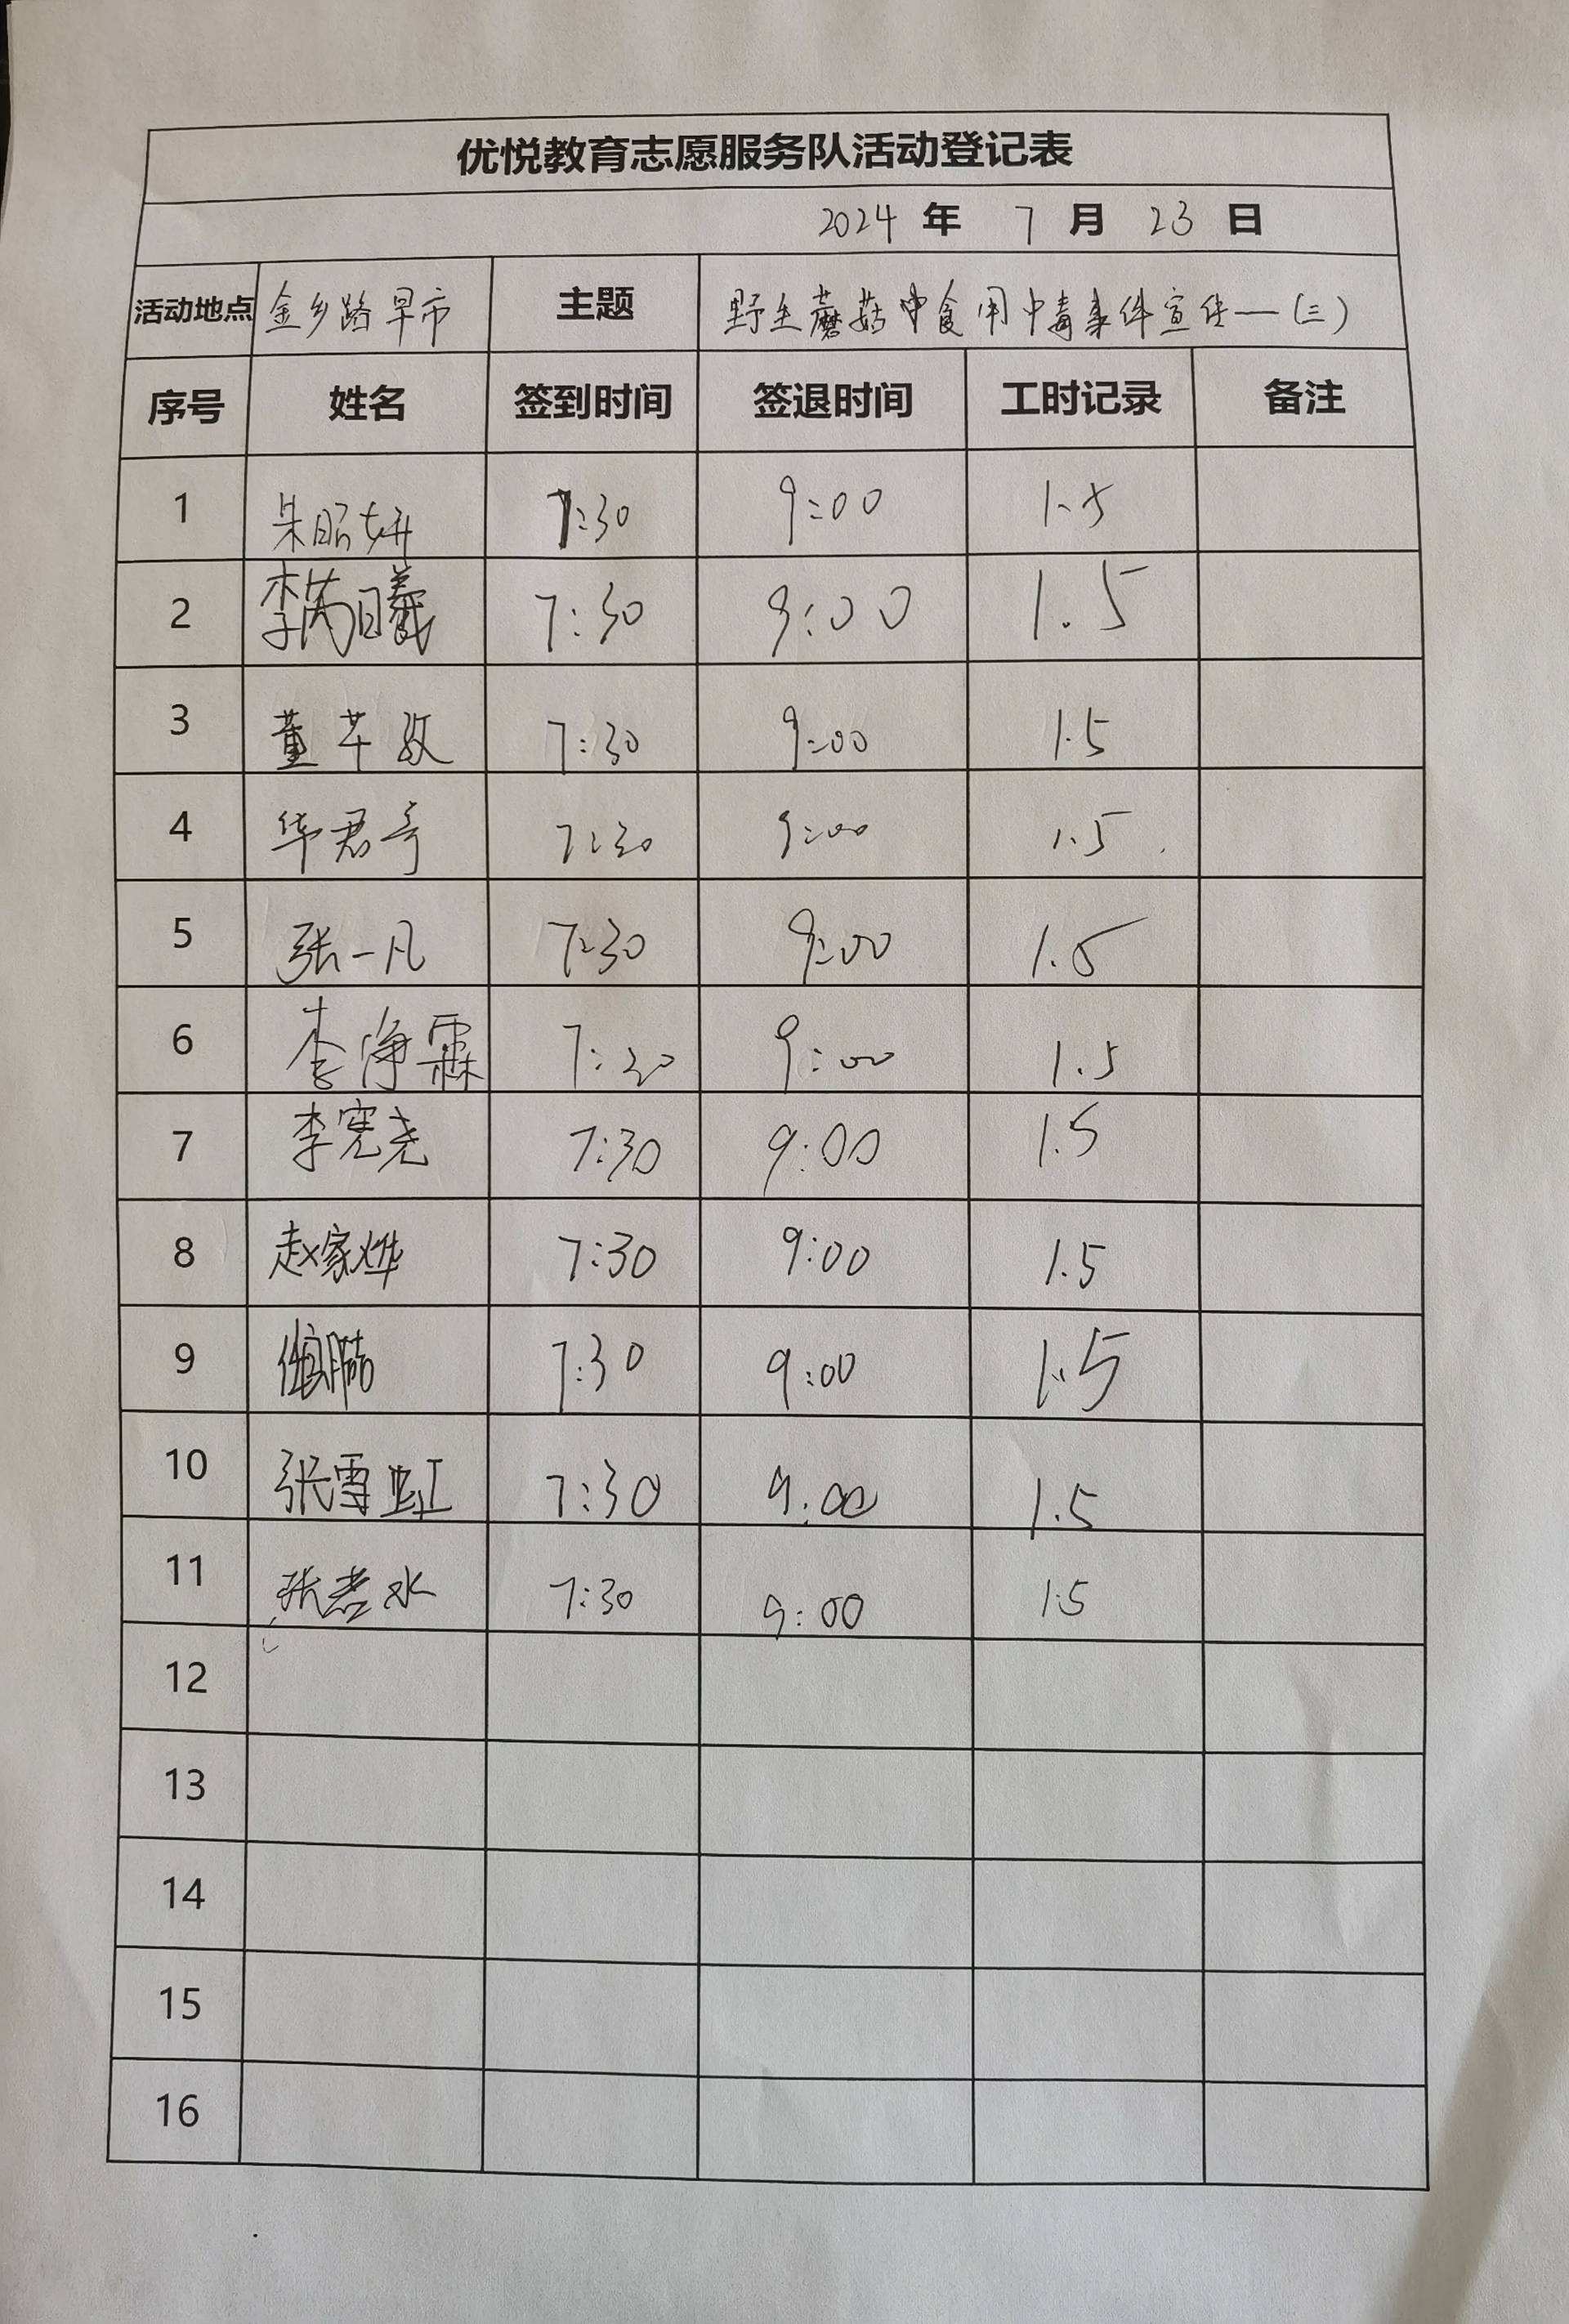 优悦教育志愿服务队活动登记表
2024 年 7 月 23 日
活动地点 金乡路早市 主题 野生蘑菇中食用中毒事件宣传一(三)
序号 姓名 签到时间 签退时间 工时记录 备注
1 朱昭妍 7:30 9:00 1.5
2 李芮曦 7:30 9:00 1.5
3 董芊孜 7:30 9:00 1.5
4 华君奇 7:30 9:00 1.5
5 张一凡 7:30 9:00 1.5
6 李净霖 7:30 9:00 1.5
7 李宪尧 7:30 9:00 1.5
8 赵家烨 7:30 9:00 1.5
9 7:30 9:00 1.5
10 张雪虹 7:30 9:00 1.5
11 张若水 7:30 9:00 1.5
12
13
14
15
16